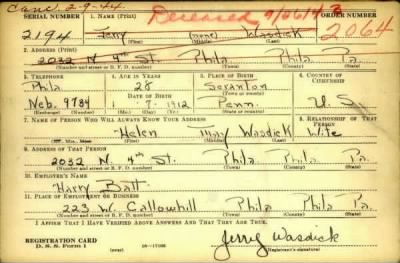 Canc. 2-9-44
Deceased
SERIAL NUMBER 1. NAME (Print) ORDER NUMBER
2194 Jerry (none) Wasdick 2064
(First) (Middle) (Last)
2. ADDRESS (Print)
2032 N. 4th St. Phila Phila Pa.
(Number and street or R. F. D. number) (Town) (County) (State)
3. TELEPHONE 4. AGE IN YEARS 5. PLACE OF BIRTH 6. COUNTRY OF CITIZENSHIP
Phila 28 Scranton
DATE OF BIRTH (Town or county)
Neb. 9784 1 7 1912 Penn. U. S.
(Exchange) (Number) (Mo.) (Day) (Yr.) (State or country)
7. NAME OF PERSON WHO WILL ALWAYS KNOW YOUR ADDRESS 8. RELATIONSHIP OF THAT PERSON
Helen May Wasdick Wife
(Mr., Mrs., Miss) (First) (Middle) (Last)
9. ADDRESS OF THAT PERSON
2032 N. 4th St. Phila Phila Pa.
(Number and street or R. F. D. number) (Town) (County) (State)
10. EMPLOYER'S NAME
Harry Batt
11. PLACE OF EMPLOYMENT OR BUSINESS
223 W. Callowhill Phila Phila Pa.
(Number and street or R. F. D. number) (Town) (County) (State)
I AFFIRM THAT I HAVE VERIFIED ABOVE ANSWERS AND THAT THEY ARE TRUE.
REGISTRATION CARD
D. S. S. Form 1
Jerry Wasdick
(Registrant's signature)